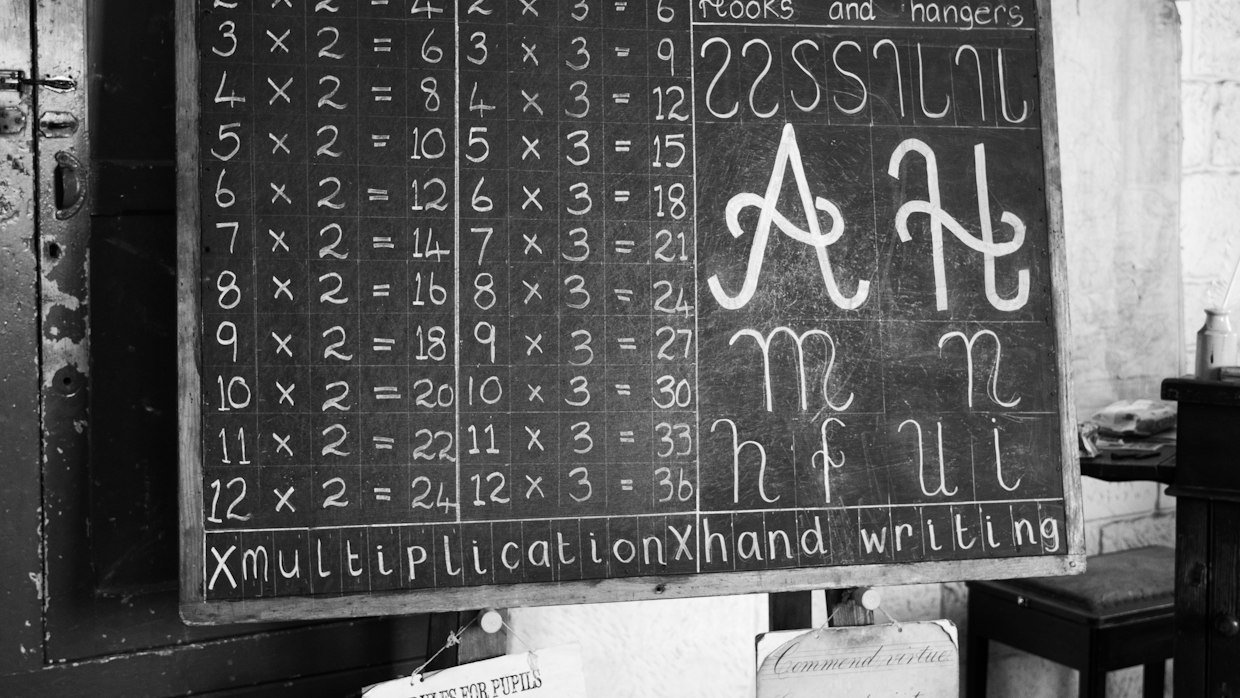 2 × 2 = 4
3 × 2 = 6
4 × 2 = 8
5 × 2 = 10
6 × 2 = 12
7 × 2 = 14
8 × 2 = 16
9 × 2 = 18
10 × 2 = 20
11 × 2 = 22
12 × 2 = 24
2 × 3 = 6
3 × 3 = 9
4 × 3 = 12
5 × 3 = 15
6 × 3 = 18
7 × 3 = 21
8 × 3 = 24
9 × 3 = 27
10 × 3 = 30
11 × 3 = 33
12 × 3 = 36
Hooks and hangers
A H
m n
h f u i
X multiplication X hand writing
RULES FOR PUPILS
Commend virtue